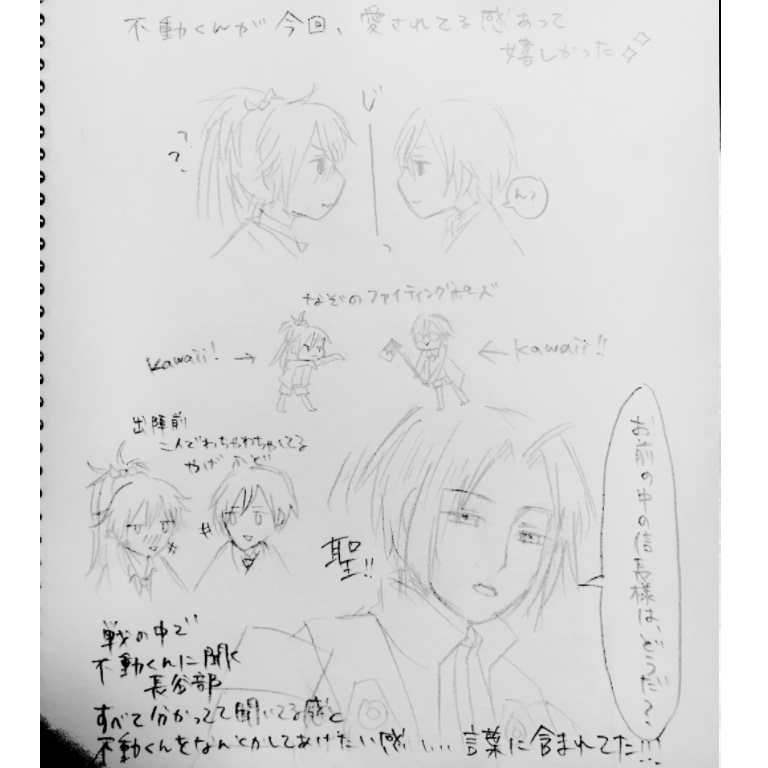 不動くんが今回、愛されてる感あって
嬉しかった
じーっ
??
ん?
なぞのファイティングポーズ
kawaii! →
← kawaii!!
出陣前
二人でわちゃわちゃしてる
やげふど
お前の中の信長様は、どうだ?
聖!!
戦の中で
不動くんに聞く
長谷部
すべて分かってて聞いてる感と
不動くんをなんとかしてあげたい感が... 言葉に含まれてた!!!